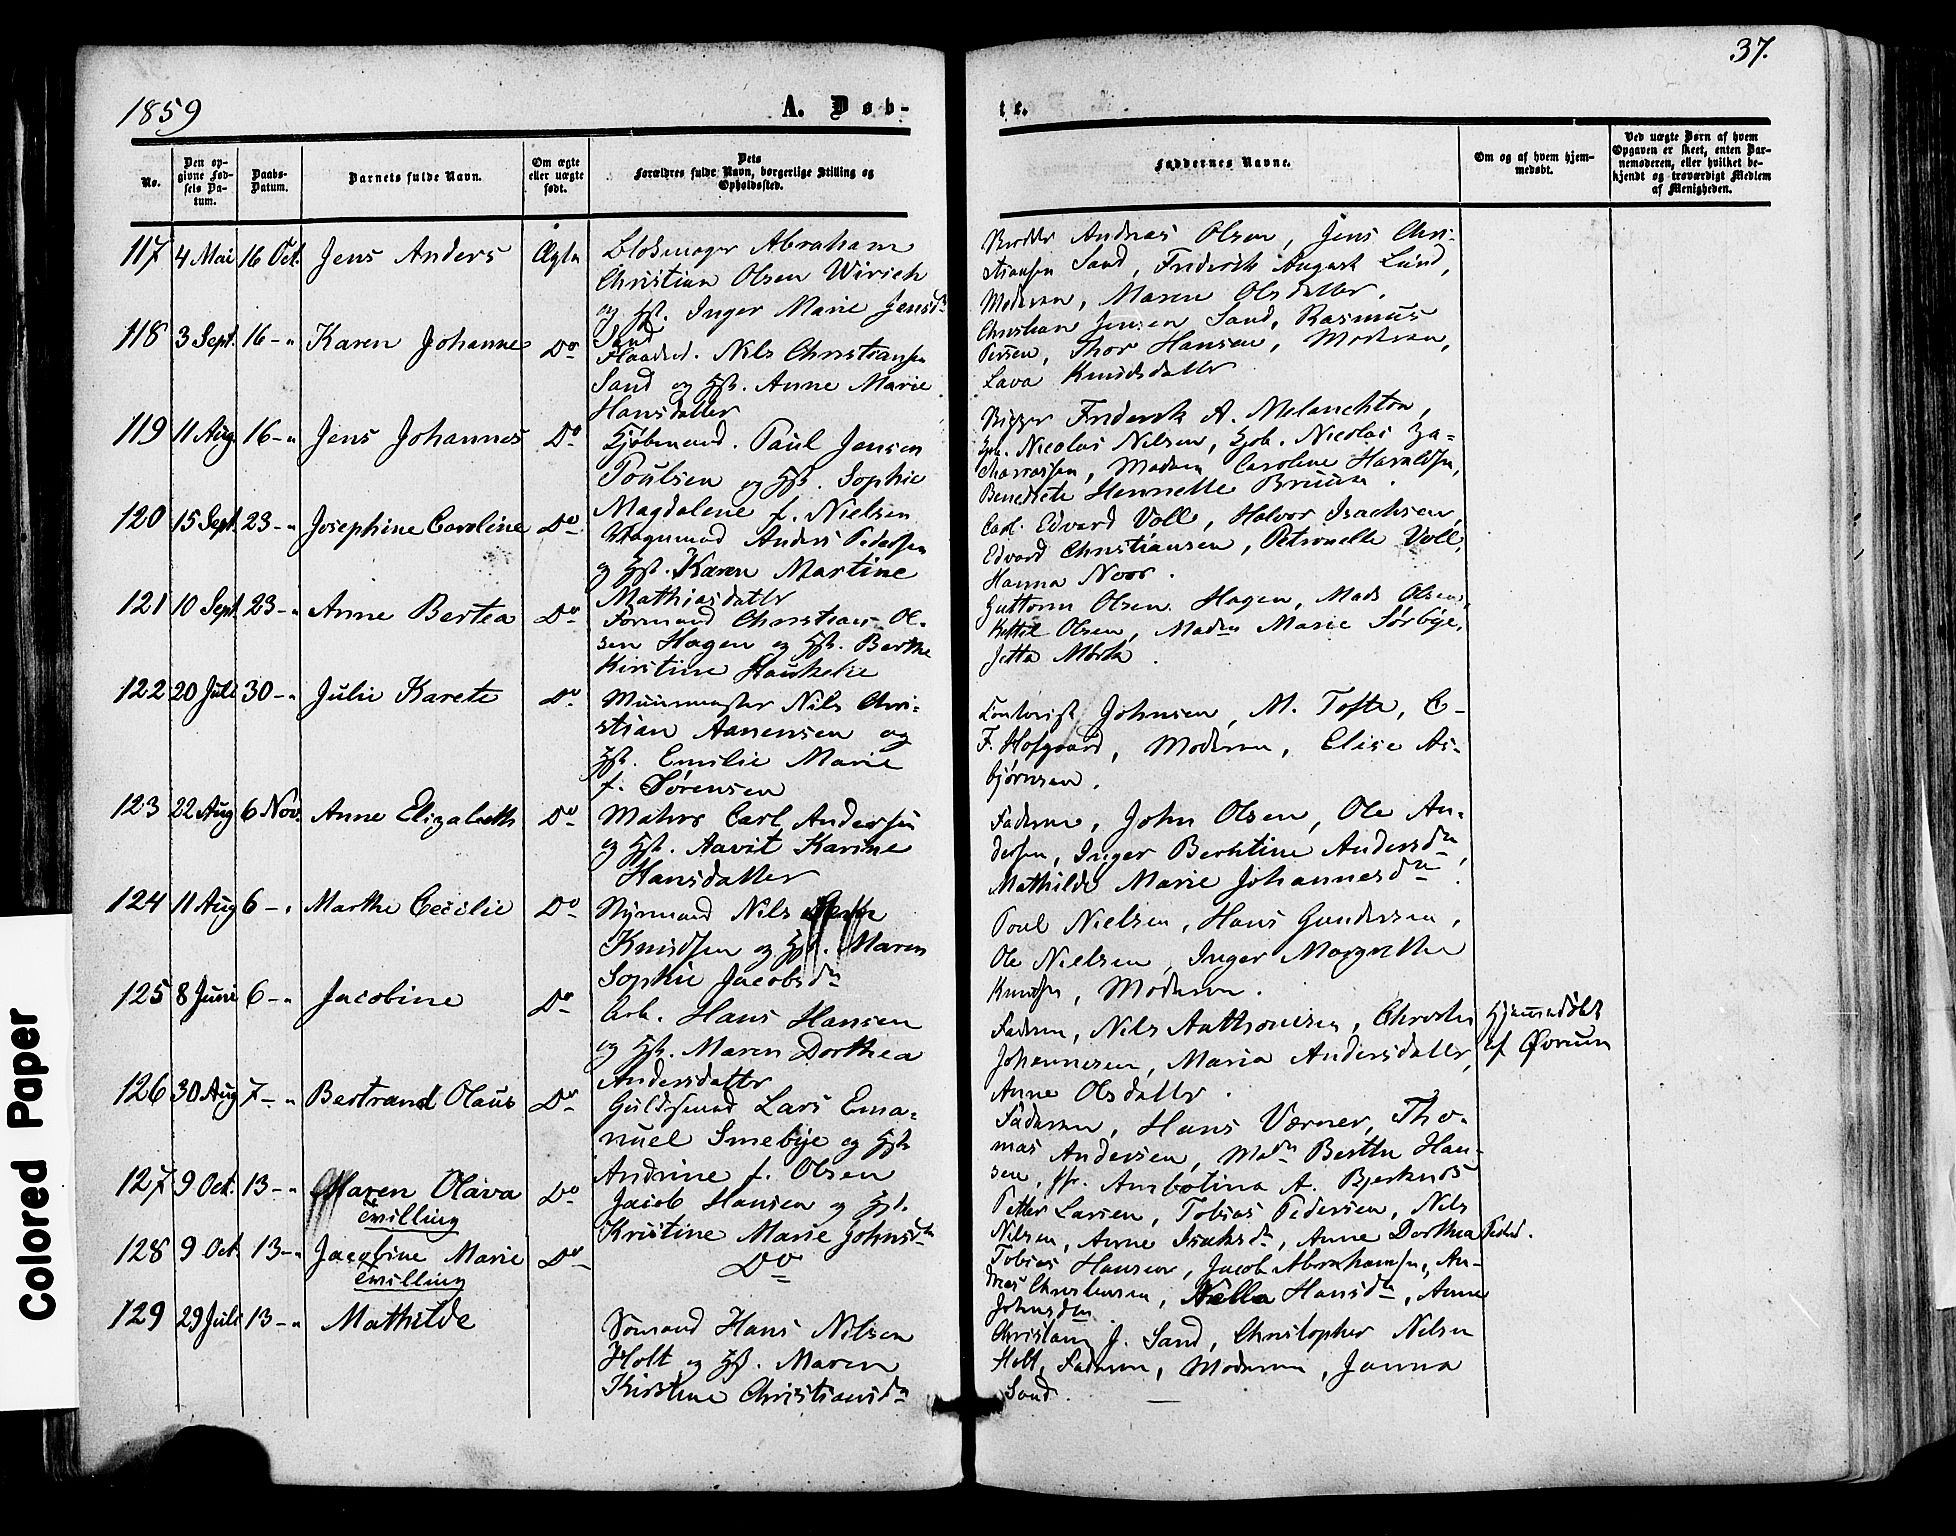 37.
1859
A. Døb-
te.
No.
Den op-
givne Fød-
sels Da-
tum.
Daabs-
Datum.
Barnets fulde Navn.
Om ægte
eller uægte
født.
Dets
Forældres fulde Navn, borgerlige Stilling og
Opholdssted.
Faddernes Navne.
Om og af hvem hjem-
medøbt.
Ved uægte Børn af hvem
Opgaven er skeet, enten Bar-
nemoderen, eller hvilket be-
kjendt og troværdigt Medlem
af Menigheden.
117 4 Mai 16 Oct. Jens Anders Ægte
Blokmager Abraham
Christian Olsen Wirich
og Hst. Inger Marie Jensdr
Sand
Andreas Olsen, Jens Chri-
stiansen Sand, Friderik August Lund,
Moderen, Maren Olsdatter.
118 3 Sept. 16 - " Karen Johanne Do
Nils Christiansen
Sand og Hst. Anne Marie
Hansdatter
Christian Jensen Sand, Rasmus
Thor Hansen, Moderen,
Lava Knudsdatter
119 11 Aug 16 - " Jens Johannes Do
Kjøbmand. Paul Jensen
Poulsen og Hst. Sophie
Magdalene f. Nielsen
Frederik A. Melanchton,
Nicolai Nilsen, Nicolai Za-
chariassen, Madam Caroline Haraldsen,
Benedicte Henriette Bruun.
120 15 Sept. 23 - " Josephine Caroline Do
Vognmand Anders Pedersen
og Hst. Karen Martine
Mathiasdatter
Carl Edvard Voll, Halvor Isachsen,
Edvard Christiansen, Petronelle Voll,
Hanna Noor.
121 10 Sept. 23 - " Anne Bertea Do
Formand Christian Ol-
sen Hagen og Hst. Berthe
Kirstine Haukelie
Guttorm Olsen Hagen, Mads Olsen,
Kittil Olsen, Madm Marie Sørbye,
Jetta Mørk.
122 20 Juli 30 - " Julie Karete Do
Muurmester Nils Chri-
stian Aanensen og
Hst. Emilie Marie
f. Sørensen
Johnsen, M. Tofte, C-
F. Hofgaard, Moderen, Elise As-
bjørnsen.
123 22 Aug 6 Nov. Anne Elizabeth Do
Matros Carl Andersen
og Hst. Aavit Karine
Hansdatter
Faderen, John Olsen, Ole An-
dersen, Inger Berthine Andersdr,
Mathilde Marie Johannesdr.
124 11 Aug 6 - " Marthe Cecilie Do
Styrmand Nils
Knudsen og Hst. Maren
Sophie Jacobsdr
Poul Nielsen, Hans Gundersen,
Ole Nielsen, Inger Margrethe
Knudsen, Moderen.
125 8 Juni 6 - " Jacobine Do
Arb. Hans Hansen
og Hst. Maren Dorthea
Andersdatter
Faderen, Nils Anthonisen, Christen
Johannesen, Maria Andersdatter,
Anne Olsdatter.
Hjemmedøbt
af Øvrum
126 30 Aug 7 - " Bertrand Olaus Do
Guldsmed Lars Ema-
nuel Smebye og Hst.
Andrine f. Olsen
Faderen, Hans Værner, Tho-
mas Andersen, Madm Berthe Han-
sen, Jfr. Ambolina A. Bjerknes
127 9 Oct. 13 - " Maren Olava Do
Tvilling
Jacob Hansen og Hst.
Kristine Marie Johnsdr
Petter Larsen, Tobias Pedersen, Nils
Nilsen, Anne Isaksdr, Anne Dorthea Pedersd.
128 9 Oct. 13 - " Jacobine Marie Do
Tvilling
Do
Tobias Hansen, Jacob Abrahamsen, An-
dreas Christensen, Nella Hansdr, Anne
Johnsdr
129 29 Juli 13 - " Mathilde
Sømand Hans Nilsen
Holt og Hst. Maren
Kirstine Christiansdr
Christian J. Sand, Christopher Nilsen
Holt, Faderen, Moderen, Janna
Sand.
Colored Paper